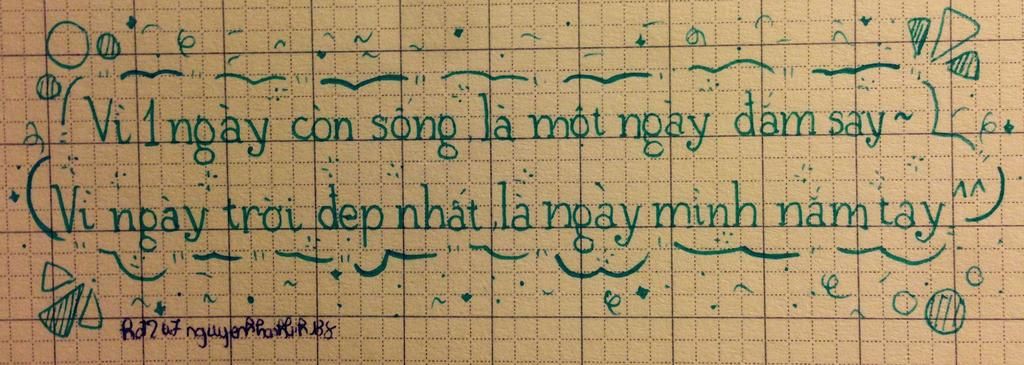 Vì 1 ngày còn sống, là một ngày đắm say ~
Vì ngày trời đẹp nhất, là ngày mình nắm tay ^^